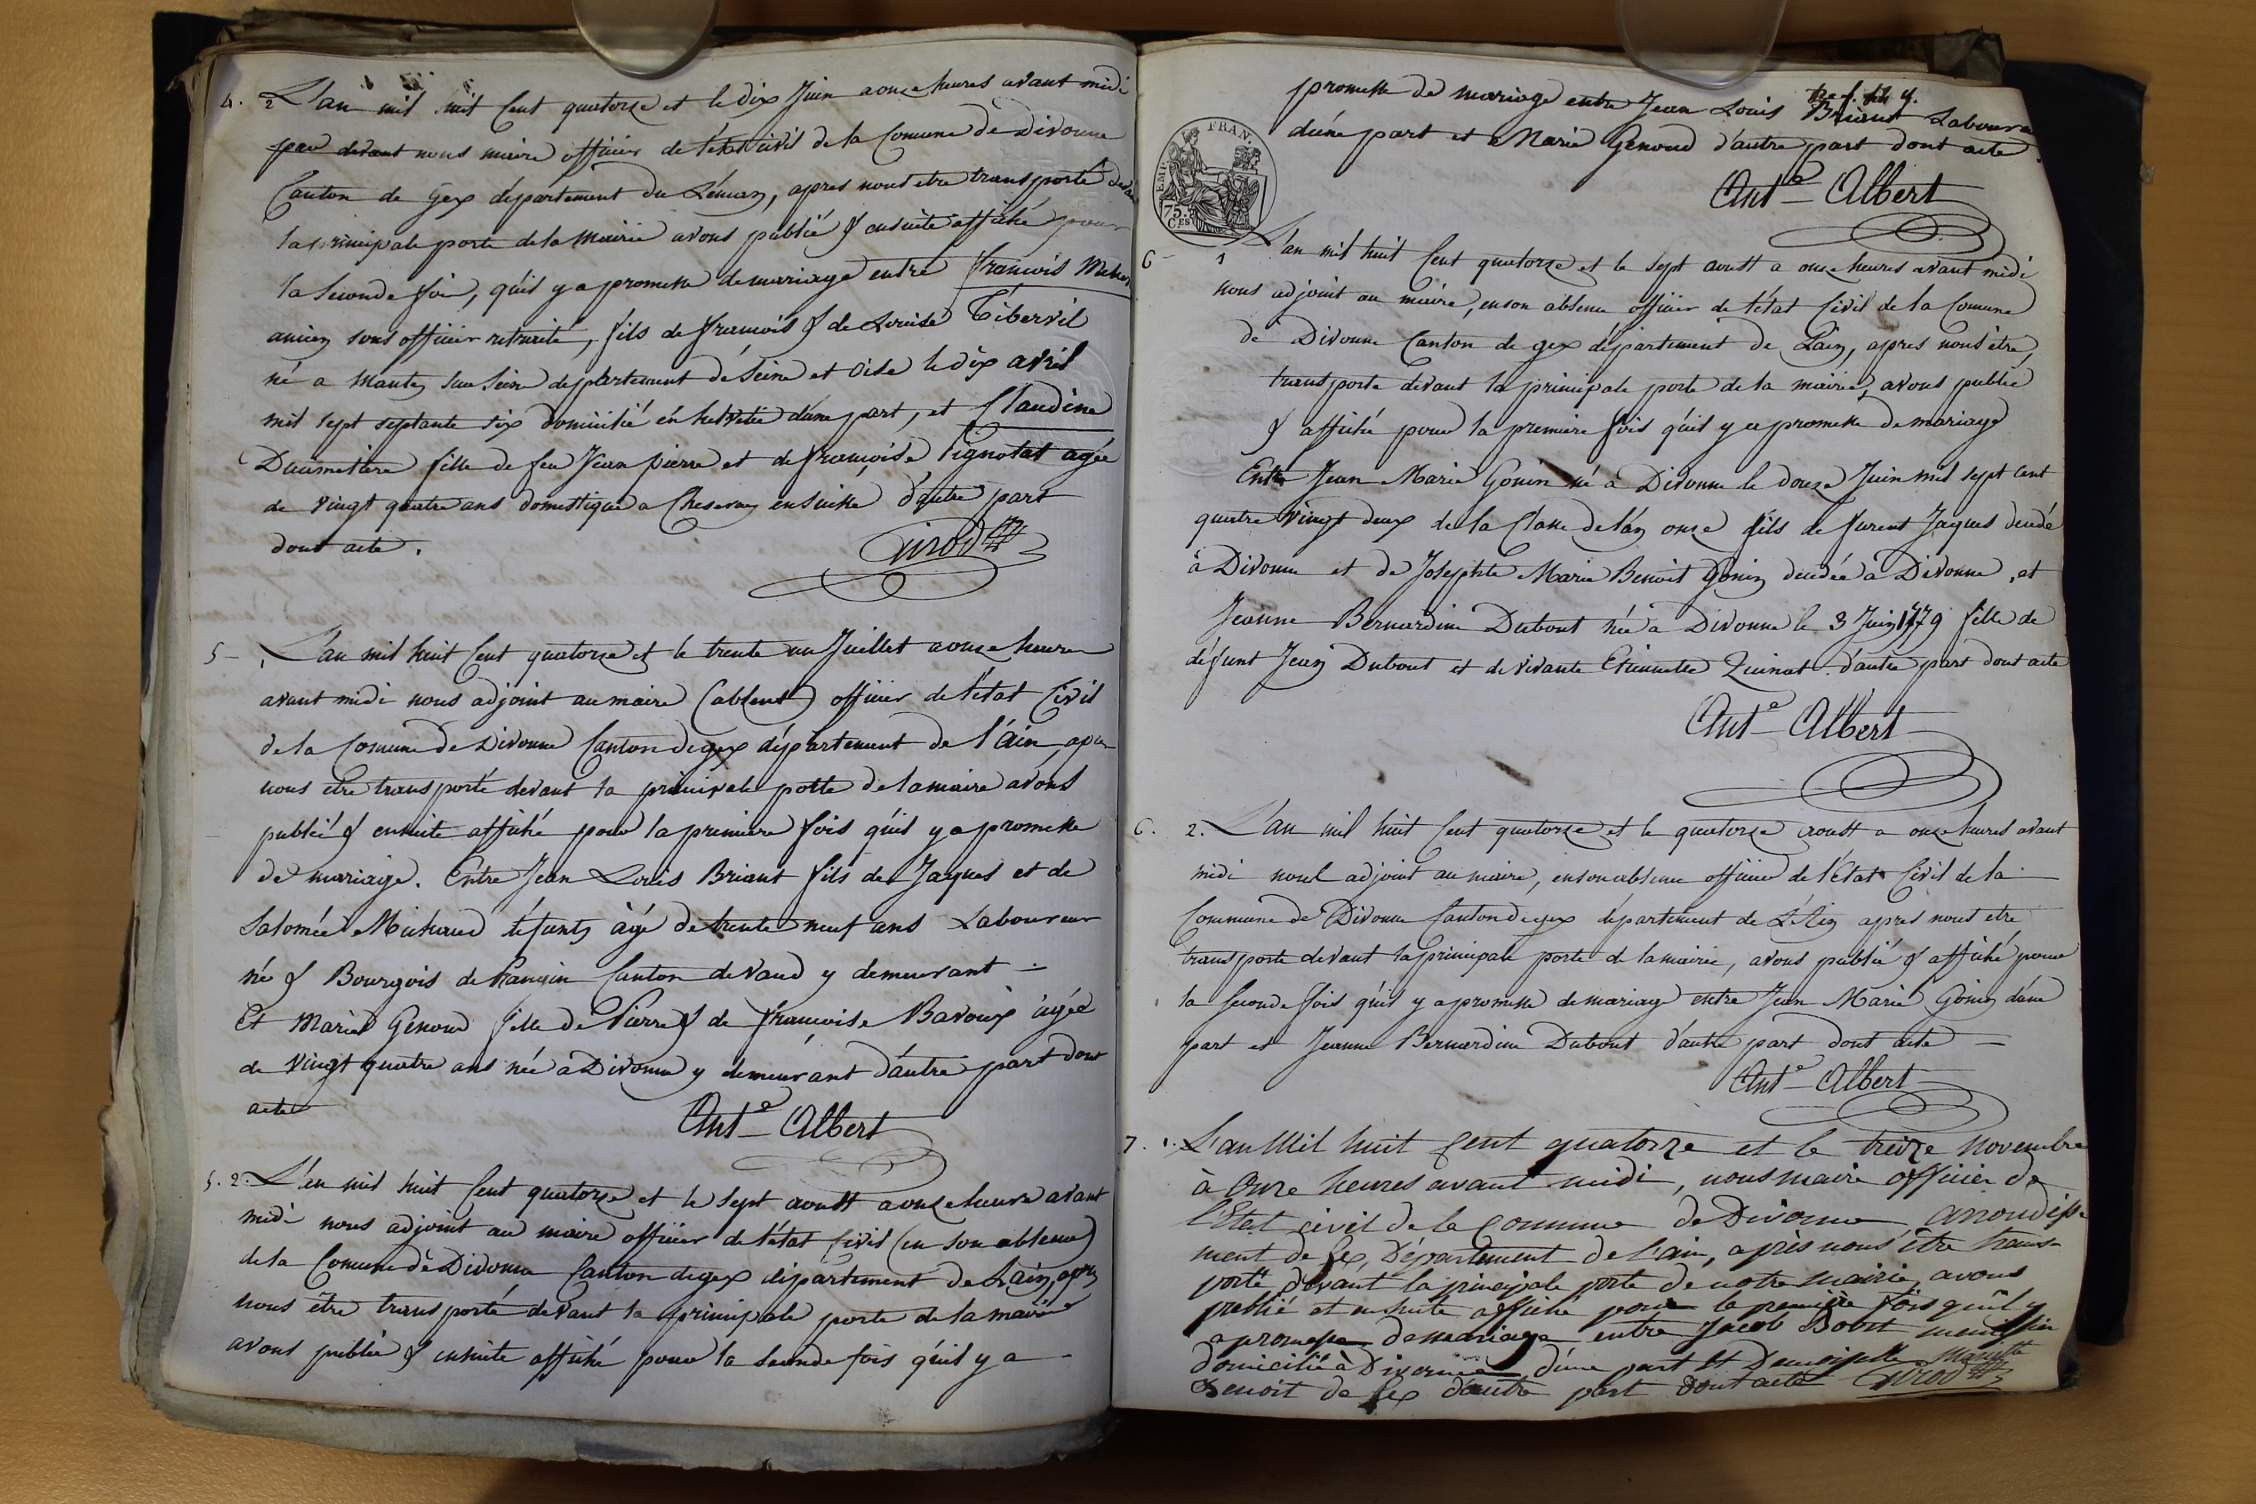 4. 2 L'an mil huit Cent quatorze et le dix Juin a onze heures avant midi
par devant nous maire officier de l'état civil de la Comune de Divonne
Canton de Gex département du Léman, apres nous etre transporté devant
la principale porte de la Mairie avons publié & ensuite affiché pour
la seconde fois, qu'il y a promesse de mariage entre francois
ancien sous officier retraité, fils de francois & de Louise Tibervil
né a Mantes sur Seine département de Seine et Oise le dix avril
mil sept septante six domicilié en helvetie d'une part, et Claudine
Daumettere fille de feu Jean pierre et de francoise Pignolat agée
de vingt quatre ans domestique a Cheserex en Suisse d'autre part
dont acte.
Girod
5 - 1 L'an mil huit Cent quatorze & le trente un Juillet a onze heures
avant midi nous adjoint au maire (absent) officier de l'état Civil
de la Comune de Divonne Canton de gex département de l'Ain, apres
nous etre transporté devant la principale potte de la maire avons
publié & ensuite affiché pour la premiere fois qu'il y a promesse
de mariage. Entre Jean Louis Briant fils de Jaques et de
Salomée Michaud défunts âgé de trente neuf ans Laboureur
né & Bourgois de Canton de Vaud y demeurant -
Et Marie Genoud fille de Pierre & de francoise Bavoux agée
de vingt quatre ans née a Divonne y demeurant d'autre part dont
acte
Ant.e Albert
5. 2. L'an mil huit Cent quatorze et le sept aoustt a onze heure avant
midi nous adjoint au maire officier de l'état Civil (en son absence)
de la Comune de Divonne Canton de gex département de L'ain, apres
nous être transporté devant la principale porte de la mairie
avons publié & ensuite affiché pour la seconde fois qu'il y a -
promesse de mariage entre Jean Louis Briant Laboureur
d'une part et Marie Genoud d'autre part dont acte.
FRAN.
75.
CES
Ant.e Albert
6 - 1 L'an mil huit Cent quatorze et le sept aoustt a onze heures avant midi
nous adjoint au maire, en son absence officier de l'état Civil de la Comune
de Divonne Canton de gex département de L'ain, apres nous être
transporté devant la principale porte de la mairie, avons publié
& affiché pour la premiere fois qu'il y a promesse de mariage
Entre Jean Marie Gonin né à Divonne le douze Juin mil sept cent
quatre vingt deux de la Classe de l'an onze fils de furent Jaques decedé
à Divonne et de Josephte Marie Benoit Gonin decedée a Divonne, et
Jeanne Bernardine Dubout née à Divonne le 3 Juin 1779 fille de
défunt Jean Dubout et de vivante Etiennette Quinat d'autre part dont acte
Ant.e Albert
6. 2. L'an mil huit Cent quatorze et le quatorze aoustt a onze heures avant
midi nous adjoint au maire, en son absence officier de l'état Civil de la
Commune de Divonne Canton de gex département de L'Ain apres nous etre
transporté devant la principale porte de la mairie, avons publié & affiché pour
la seconde fois qu'il y a promesse de mariage entre Jean Marie Gonin d'une
part et Jeanne Bernardine Dubout d'autre part dont acte -
Ant.e Albert
7. 1. L'an Mil huit Cent quatorze et le treize Novembre
à onze heures avant midi, nous maire officier de
l'Etat civil de la Commune de Divonne, arrondisse
ment de Gex, Département de l'ain, après nous être trans-
porté devant la principale porte de notre mairie, avons
publié et ensuite affiché pour la première fois qu'il y
a promesse de mariage entre Jacob Bobst
domicilié à Divonne d'une part Et Demoiselle
Benoit de Gex d'autre part dont acte Girod